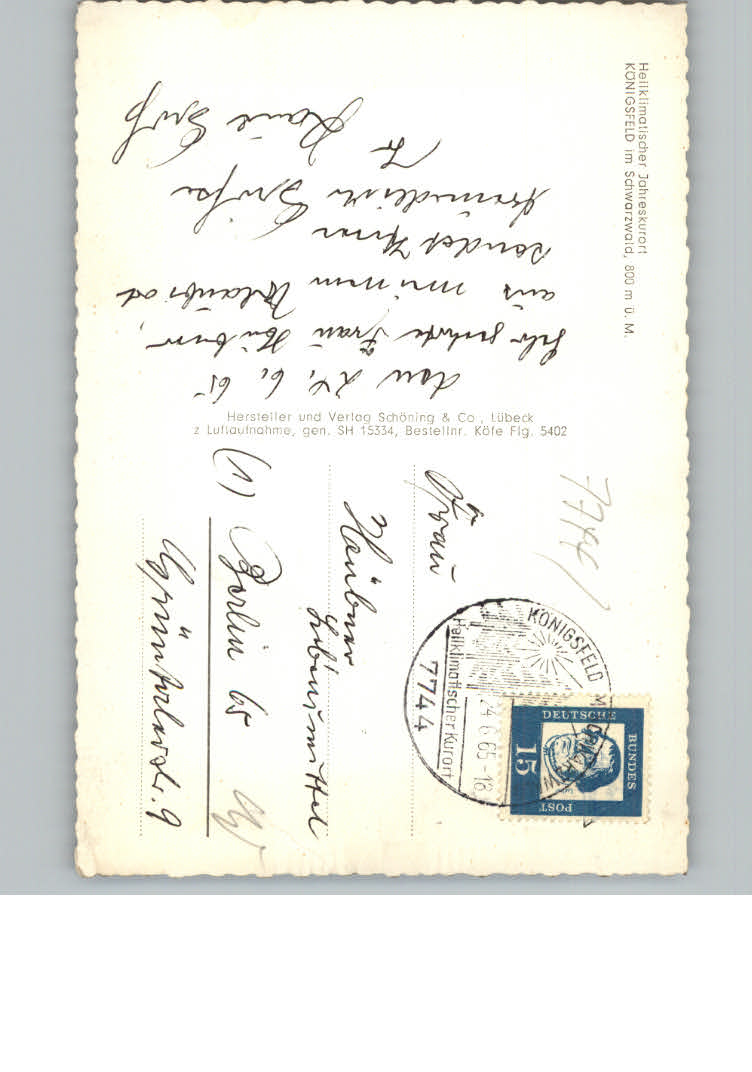 Heilklimatischer Jahreskurort
KÖNIGSFELD im Schwarzwald, 800 m ü. M.
den 24. 6. 65
Sehr geehrte Frau Häubner,
aus meinem Urlaubsort
sendet Ihnen
freundliche Grüße
Fr
Hersteller und Verlag Schöning & Co., Lübeck
z Luftaufnahme, gen. SH 15334, Bestellnr. Köfe Flg. 5402
7744
Frau
Häubner
Lebensmittel
(1) Berlin 65
Grüntalerstr. 9
KÖNIGSFELD
Heilklimatischer Kurort
7744
24.6.65-18
DEUTSCHE
BUNDES
POST
15